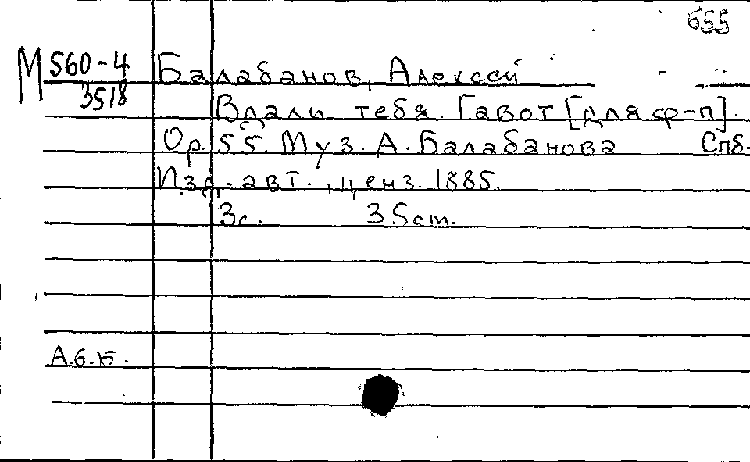 655
М 560-4 Балабанов, Алексей
3518
Вдали тебя. Гавот [для ф-п].
Ор. 55. Муз. А. Балабанова Спб.
Изд. авт., ценз. 1885.
3с. 35cm.